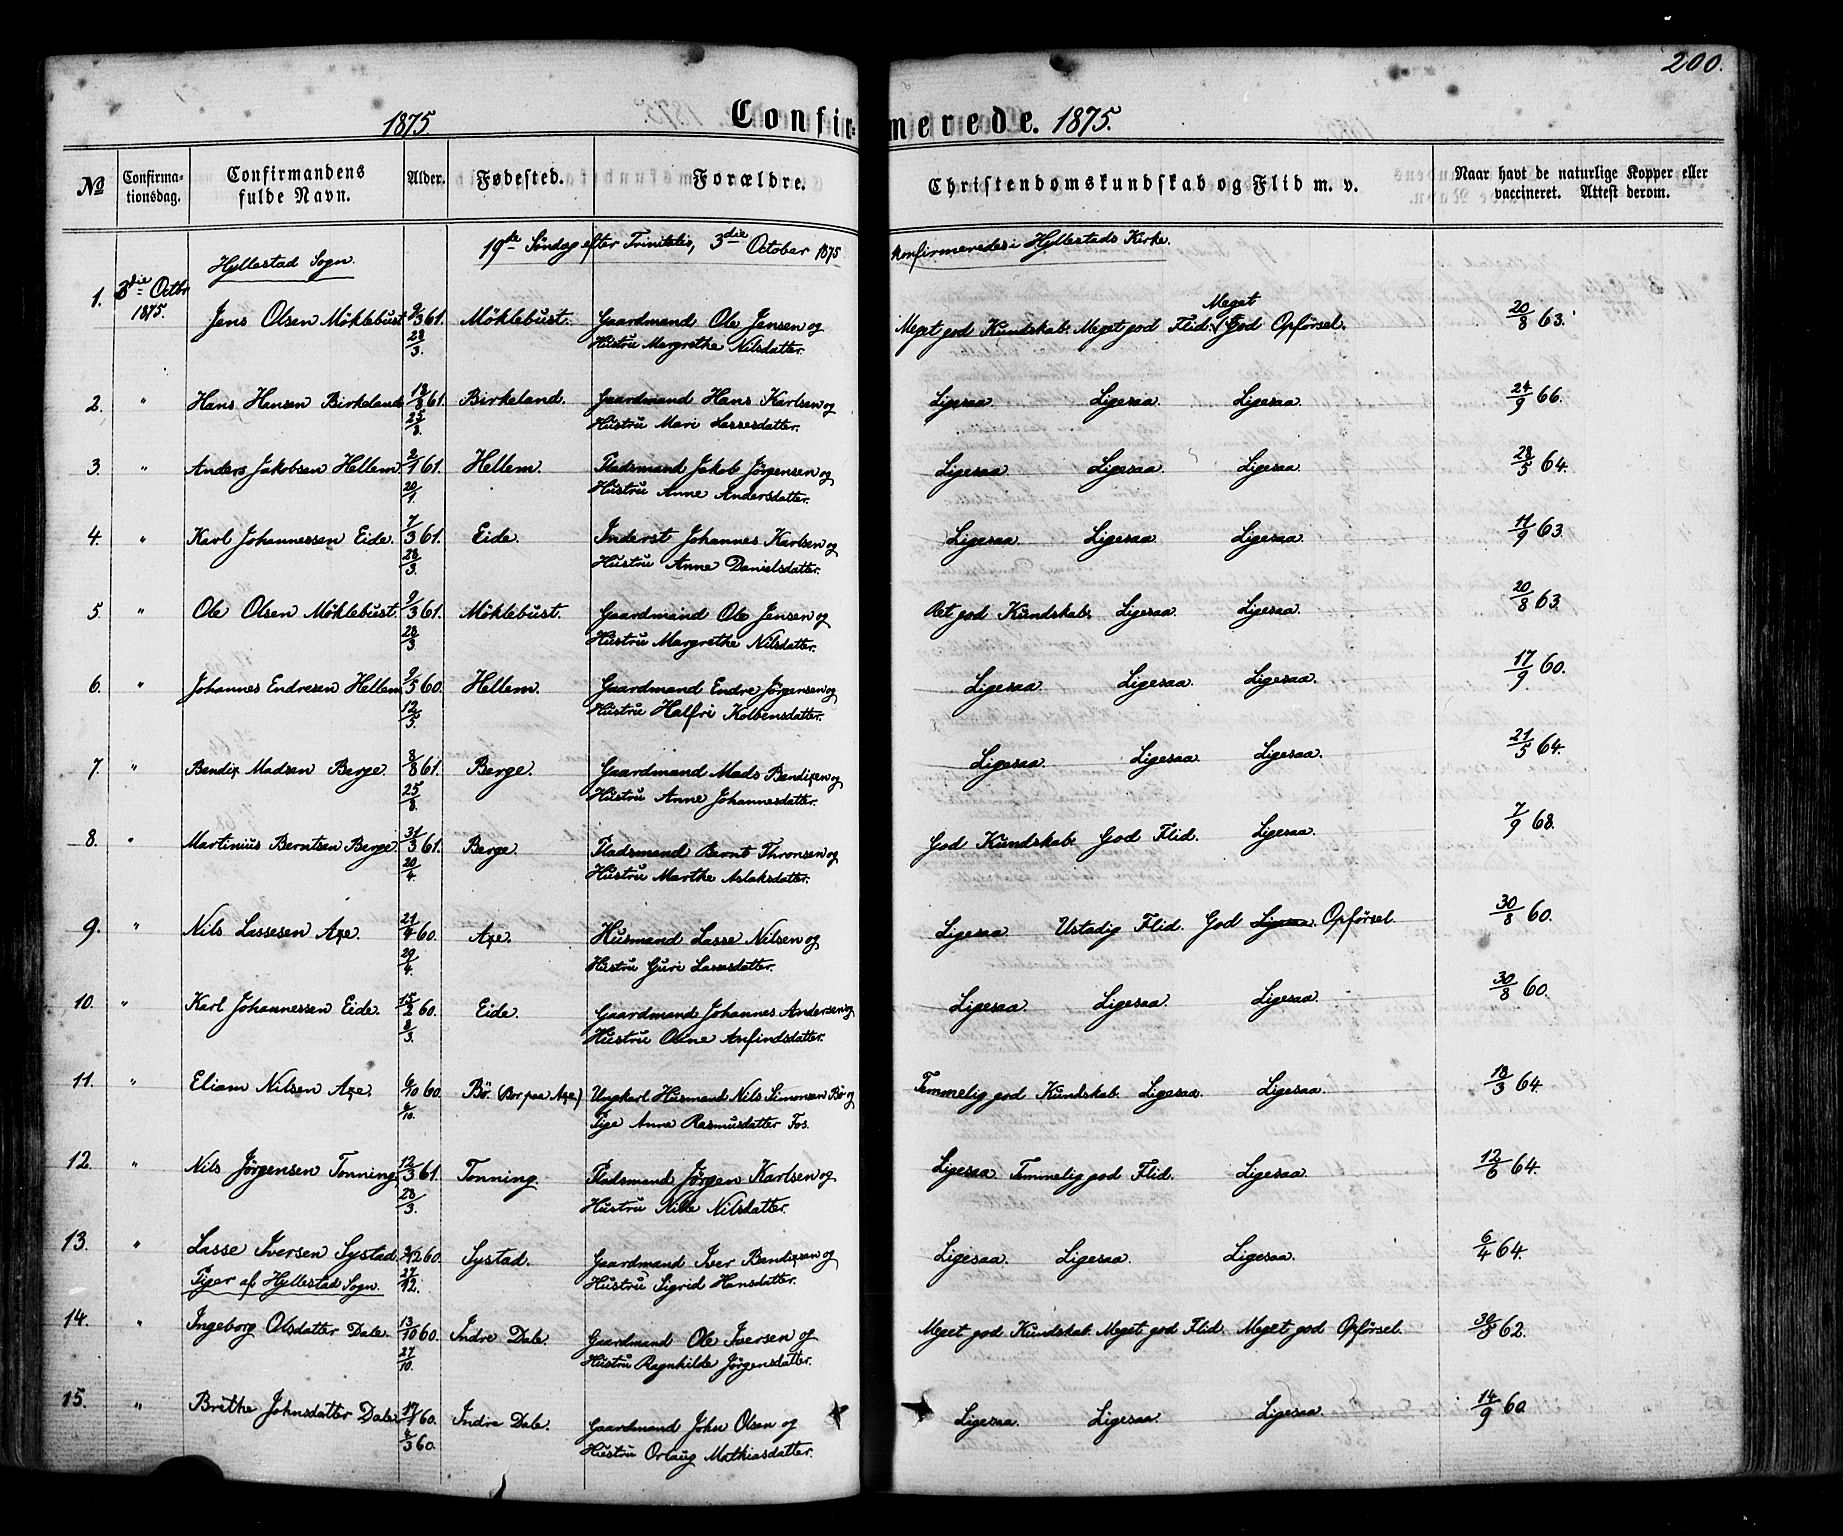 200.
1875 Confirmerede. 1875.
No Confirmationsdag. Confirmandens fulde Navn. Alder. Fødested. Forældre. Christendomskundskab og Flid m. v. Naar havt de naturlige Kopper eller vaccineret. Attest derom.
19de Søndag efter Trinitatis, 3die October 1875 Konfirmeredes i Hyllestads Kirke.
Hyllestad Sogn.
1. 3die Octbr 1875. Jens Olsen Möklebust 9/3 61. Möklebust. Gaardmand Ole Jensen og Meget god Kundskab. Meget god Flid. Meget God Opførsel. 20/8 63.
28/3. Hustru Margrethe Nilsdatter.
2. " Hans Hansen Birkeland 18/8 61. Birkeland. Gaardmand Hans Karlsen og Ligesaa. Ligesaa. Ligesaa. 24/9 66.
25/8. Hustru Mari Lassesdatter.
3. " Anders Jakobsen Hellem. 2/1 61. Hellem. Pladsmand Jakob Jörgensen og Ligesaa Ligesaa. Ligesaa. 28/5 64.
20/1. Hustru Anne Andersdatter.
4. " Karl Johannessen Eide. 7/3 61. Eide. Inderst Johannes Karlsen og Ligesaa Ligesaa Ligesaa. 11/9 63.
28/3. Hustru Anne Danielsdatter.
5. " Ole Olsen Möklebust. 9/3 61. Möklebust. Gaardmand Ole Jensen og Ret god Kundskab. Ligesaa. Ligesaa. 20/8 63.
28/3 Hustru Margrethe Nilsdatter.
6. " Johannes Endresen Hellem 9/5 60. Hellem. Gaardmand Endre Jörgensen og Ligesaa. Ligesaa. Ligesaa. 17/9 60.
12/5. Hustru Halfri Kolbensdatter.
7. " Bendix Madsen Berge. 8/8 61. Berge. Gaardmand Mads Bendixen og Ligesaa. Ligesaa. Ligesaa. 21/5 64.
25/8. Hustru Anne Johannesdatter.
8. " Martinius Berntsen Berge. 31/3 61. Berge. Pladsmand Bernt Thronsen og God Kundskab. God Flid. Ligesaa. 7/9 68.
20/4. Hustru Marthe Aslaksdatter.
9. " Nils Lassesen Axe. 21/4 60. Axe. Husmand Lasse Nilsen og Ligesaa Ustadig Flid. God Ligesaa. Opførsel. 30/8 60.
29/4. Hustru Guri Lassesdatter.
10. " Karl Johannessen Eide. 15/2 60. Eide. Gaardmand Johannes Andersen og Ligesaa. Ligesaa. Ligesaa. 30/8 60.
8/3. Hustru Oline Anfindsdatter.
11. " Eliam Nilsen Axe. 6/10 60. Bö. (Bor paa Axe) Ungkarl Husmand Nils Simonsen Bö og Temmelig god Kundskab. Ligesaa. Ligesaa. 18/3 64.
Pige Anna Rasmusdatter Fos.
12 " Nils Jörgensen Tonning. 12/3 61. Tonning. Pladsmand Jörgen Karlsen og Ligesaa. Temmelig god Flid. Ligesaa. 12/6 64.
28/3. Hustru Nille Nilsdatter.
13. " Lasse Iversen Systad. 2/12 60. Systad. Gaardmand Iver Bendixen og Ligesaa. Ligesaa. Ligesaa. 6/4 64.
Piger af Hyllestad Sogn. 27/12. Hustru Sigrid Hansdatter.
14. " Ingeborg Olsdatter Dale. 13/10 60. Indre Dale. Gaardmand Ole Iversen og Meget god Kundskab. Meget god Flid. Meget god Opførsel. 30/8 62.
27/10. Hustru Ragnhilde Jörgensdatter.
15. " Brithe Johnsdatter Dale 60. Indre Dale. Gaardmand John Olsen og Ligesaa. Ligesaa. Ligesaa. 14/9 60.
60. Hustru Orlaug Mathiasdatter.